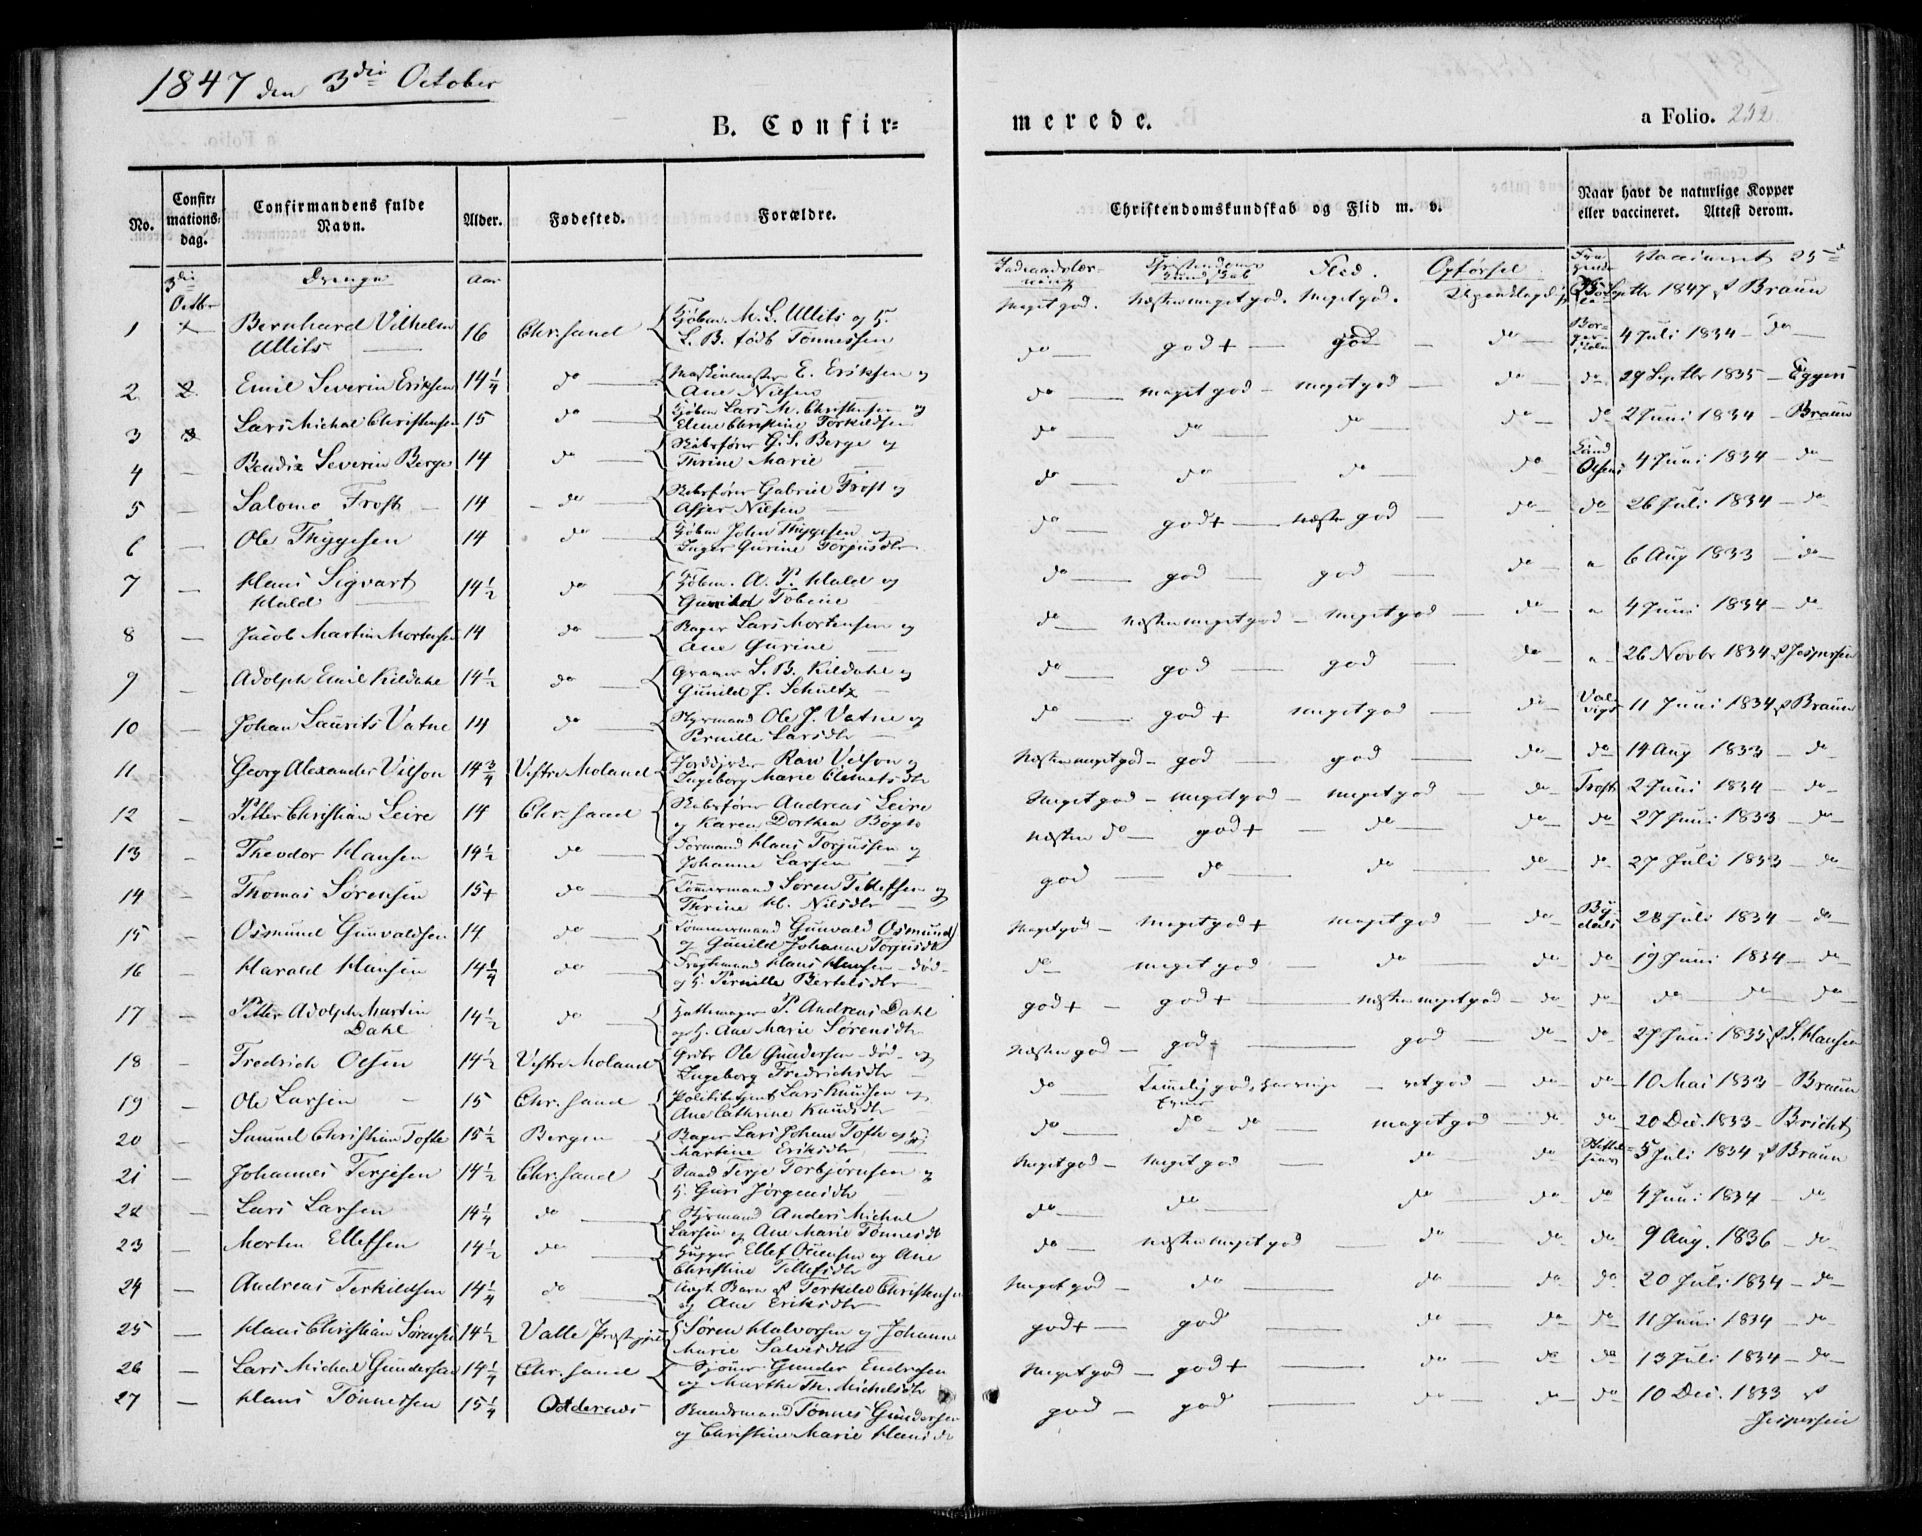 1847 den 3die October
B. Confir=
merede.
a Folio. 232
No.
Confir=
mations=
dag.
Confirmandens fulde
Navn.
Alder.
Fødested.
Forældre.
Christendomskundskab og Flid m. v.
Naar havt de naturlige Kopper
eller vaccineret. Attest derom.
3die
Octbr
Drenge
Aar
Christendoms
kundskab
Flid.
Opførsel
Vaccineret 25de
1 Bernhard Vilhelm
Ullits
16 Chr.sand
Kjøbm. M. S. Ullits og H.
L. B. født Tønnessen
Meget god. Næsten meget god. Meget god.
Septbr 1847 af Braun
2 Emil Severin Eriksen 14¼ do
E. Eriksen og
Ane Nilsen
do god + god do
4 Juli 1834 do
3 Lars Michal Christensen 15 do
Kjøbm Lars M. Christensen og
Elene Christine Torkildsen
do meget god meget god do do
29 Septbr 1835 Eggers
4 Bendix Severin Berge 14 do
G. S. Berge og
Thrine Marie
do do do do do
2 Juni 1834 Braun
5 Salomo Frost 14 do
Gabriel Frost og
Asser Nilsen
do do do do Olsen
4 Juni 1834 do
6 Ole Thygesen 14 do
Kjøbm John Thygesen og
Inger Gurine Torjusdtr
do god + næsten god do do
26 Juli 1834 do
7 Hans Sigvart
Hald
14½ do
Kjøbm. A. P. Hald og
Gunild Tobine
do god god do
6 Aug 1833 do
8 Jacob Martin Mortensen 14 do
Bager Lars Mortensen og
Ane Gurine
do næsten meget god meget god do
4 Juni 1834 do
9 Adolph Emil Kildahl 14½ do
S. B. Kildahl og
Gunild J. Schultz
do god god do
26 Novbr 1834 af Jespersen
10 Johan Laurits Vatne 14 do
Styrmand Ole J. Vatne og
Pernille Larsdtr
do god + meget god do
11 Juni 1834 af Braun
11 Georg Alexander Vilson 14¾ Vestre Moland
Vilson og
Ingeborg Marie Clemetsdtr
Næsten meget god god god do do
14 Aug 1833 do
12 Petter Christian Leire 14 Chr.sand
Andreas Leire
og Karen Dorthea
Meget god meget god meget god do Frost
2 Juni 1834 do
13 Theodor Hansen 14½ do
Formand Hans Torjussen og
Johanne Larsen
næsten do god + do do do
27 Juni 1833 do
14 Thomas Sørensen 15+ do
Tømmermand Søren Tellefsen og
Thrine H. Nilsdtr
god do do do do
27 Juli 1833 do
15 Osmund Gunvaldsen 14 do
Tømmermand Gunvald Osmunds
og Gunild Johanne Torjusdtr
Meget god meget god + meget god do
28 Juli 1834 do
16 Harald Hansen 14¼ do
Hans Hansen død
og H. Pernille Bertelsdtr
do meget god do do do
19 Juni 1834 do
17 Petter Adolph Martin
Dahl
14½ do
Hattemager P. Andreas Dahl
og H. Ane Marie Sørensdtr
god + god + næsten meget god do do
do do do
18 Fredrich Olsen 14½ Vestre Moland
Ole Gundersen død og
Ingeborg Fredrichsdtr
Næsten god god god do do
27 Juni 1835 af S. Hansen
19 Ole Larsen 15 Chr.sand
Politibetjent Lars Knudsen og
Ane Cathrine Knudsdtr
do ret god do do
10 Mai 1833 Braun
20 Samuel Christian Tofte 15½ Bergen
Bager Lars Johan Tofte og H.
Martine Eriksdtr
do do do meget god do do
20 Dec. 1833
21 Johannes Terjesen 14½ Chr.sand
Terje Torbjørnsen og
H. Guri Jørgensdtr
Meget god meget god do do
5 Juli 1834 af Braun
22 Lars Larsen 14¼ do
Styrmand Anders Michal
Larsen og Ane Marie Tønnesdtr
do do do do do
4 Juni 1834 do
23 Morten Ellefsen 14½ do
Ellef Ouensen og Ane
Christine Tellefsdtr
do næsten meget god do do do
9 Aug. 1836 do
24 Andreas Terkildsen 14¼ do
Uægt. Barn af Terkild Christensen
og Ane Eriksdtr
Meget god do do do do
20 Juli 1834 do
25 Hans Christian Sørensen 14½ Valle Præstegjeld
Søren Halvorsen og Johanne
Marie Salvesdtr
god + god do do do
11 Juni 1834 do
26 Lars Michal Gundersen 14¼ Chr.sand
Gunder Endresen
og Marthe Th. Michelsdtr
Meget god god + do do do
13 Juli 1834 do
27 Hans Tønnessen 15¼ Oddernes
Tønnes Gundersen
og Christine Marie Hansdtr
god god do do do
10 Dec. 1833 af
Jespersen